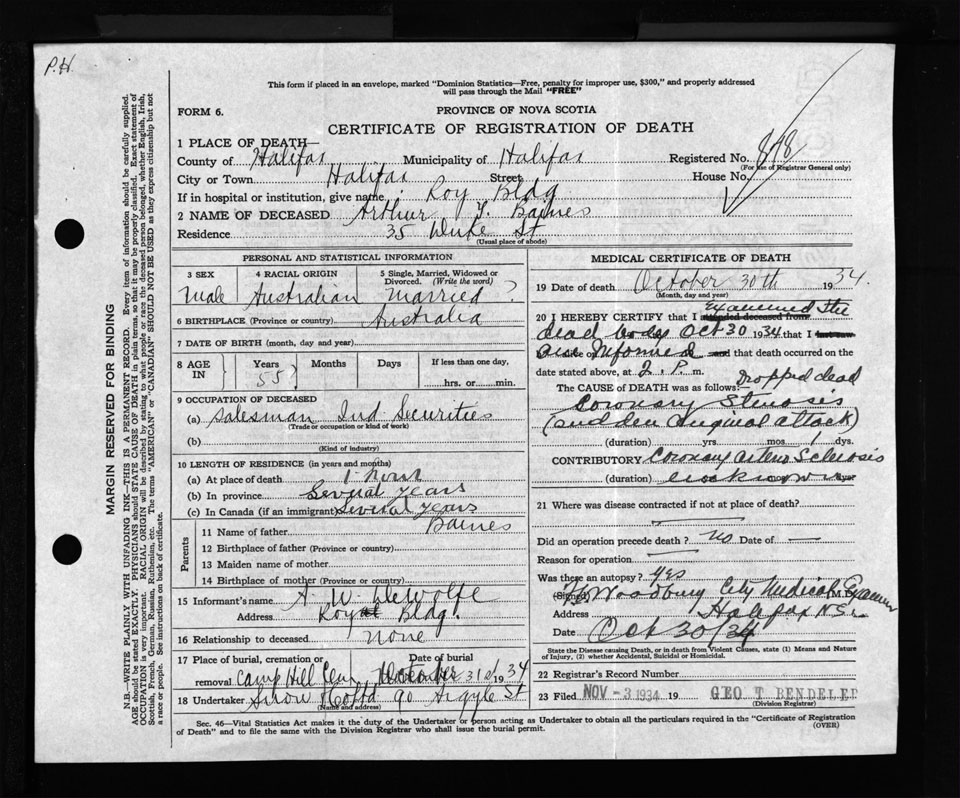 P.H.
This form if placed in an envelope, marked "Dominion Statistics—Free, penalty for improper use, $300," and properly addressed
will pass through the Mail "FREE"
FORM 6.
PROVINCE OF NOVA SCOTIA
CERTIFICATE OF REGISTRATION OF DEATH
1 PLACE OF DEATH—
County of Halifax Municipality of Halifax Registered No. 898
(For use of Registrar General only)
City or Town Halifax Street House No.
If in hospital or institution, give name Roy Bldg
2 NAME OF DECEASED Arthur Y. Baines
Residence 35 Duke St
(Usual place of abode)
PERSONAL AND STATISTICAL INFORMATION
3 SEX 4 RACIAL ORIGIN 5 Single, Married, Widowed or Divorced. (Write the word)
Male Australian Married ?
6 BIRTHPLACE (Province or country) Australia
7 DATE OF BIRTH (month, day and year)
8 AGE IN Years Months Days If less than one day,
55? hrs. or min.
9 OCCUPATION OF DECEASED
(a) Salesman Ind Securities
(Trade or occupation or kind of work)
(b)
(Kind of industry)
10 LENGTH OF RESIDENCE (in years and months)
(a) At place of death 1 hour
(b) In province Several years
(c) In Canada (if an immigrant) Several years
Parents
11 Name of father Baines
12 Birthplace of father (Province or country)
13 Maiden name of mother
14 Birthplace of mother (Province or country)
15 Informant's name A. W. DeWolfe
Address Royal Bldg.
16 Relationship to deceased none
17 Place of burial, cremation or removal Camp Hill Cem Date of burial October 31st 1934
18 Undertaker Snow &Co Ltd 90 Argyle St
(Name and address)
MEDICAL CERTIFICATE OF DEATH
19 Date of death October 30th 1934
(Month, day and year)
examined the
20 I HEREBY CERTIFY that I attended deceased from
dead body Oct 30 1934 that I last saw
am informed and that death occurred on the
date stated above, at 2. P. m.
The CAUSE OF DEATH was as follows: Dropped dead
Coronary Stenosis
(sudden Anginal attack)
(duration) yrs. mos. 1 dys.
CONTRIBUTORY Coronary arterio Sclerosis
(duration) unknown
21 Where was disease contracted if not at place of death?
Did an operation precede death? no Date of —
Reason for operation
Was there an autopsy? yes
(Signed) Woodbury City Medical Examiner M.D.
Address Halifax N.S.
Date Oct 30/34
State the Disease causing Death, or in death from Violent Causes, state (1) Means and Nature
of Injury, (2) whether Accidental, Suicidal or Homicidal.
22 Registrar's Record Number
23 Filed NOV -3 1934 19 GEO T BENDELER
(Division Registrar)
Sec. 46—Vital Statistics Act makes it the duty of the Undertaker or person acting as Undertaker to obtain all the particulars required in the "Certificate of Registration
of Death" and to file the same with the Division Registrar who shall issue the burial permit.
(OVER)
MARGIN RESERVED FOR BINDING
N.B.—WRITE PLAINLY WITH UNFADING INK—THIS IS A PERMANENT RECORD. Every item of information should be carefully supplied.
AGE should be stated EXACTLY. PHYSICIANS should STATE CAUSE OF DEATH in plain terms, so that it may be properly classified. Exact statement of
OCCUPATION is very important. RACIAL ORIGIN will be described by stating to what people or race the deceased person belonged, whether English, Irish,
Scottish, French, German, Russian, Ruthenian, etc. The terms "AMERICAN" or "CANADIAN" SHOULD NOT BE USED as they express citizenship but not
a race or people. See instructions on back of certificate.